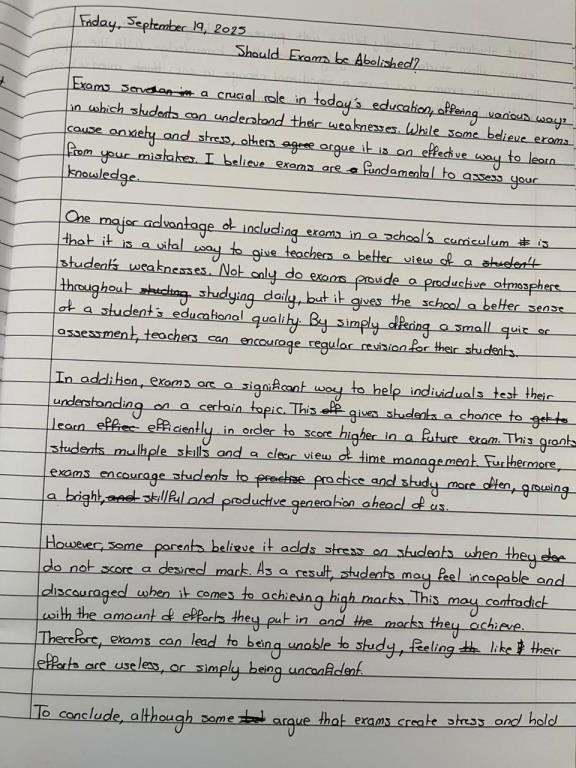 Friday, September 19, 2025
Should Exams be Abolished?
Exams serve a crucial role in today's education, offering various ways
in which students can understand their weaknesses. While some believe exams
cause anxiety and stress, others argue it is an effective way to learn
from your mistakes. I believe exams are fundamental to assess your
knowledge.
One major advantage of including exams in a school's curriculum is
that it is a vital way to give teachers a better view of a
student's weaknesses. Not only do exams provide a productive atmosphere
throughout studying daily, but it gives the school a better sense
of a student's educational quality. By simply offering a small quiz or
assessment, teachers can encourage regular revision for their students.
In addition, exams are a significant way to help individuals test their
understanding on a certain topic. This gives students a chance to
learn efficiently in order to score higher in a future exam. This grants
students multiple skills and a clear view of time management. Furthermore,
exams encourage students to practice and study more often, growing
a bright, skillful and productive generation ahead of us.
However, some parents believe it adds stress on students when they
do not score a desired mark. As a result, students may feel incapable and
discouraged when it comes to achieving high marks. This may contradict
with the amount of efforts they put in and the marks they achieve.
Therefore, exams can lead to being unable to study, feeling like their
efforts are useless, or simply being unconfident.
To conclude, although some argue that exams create stress and hold